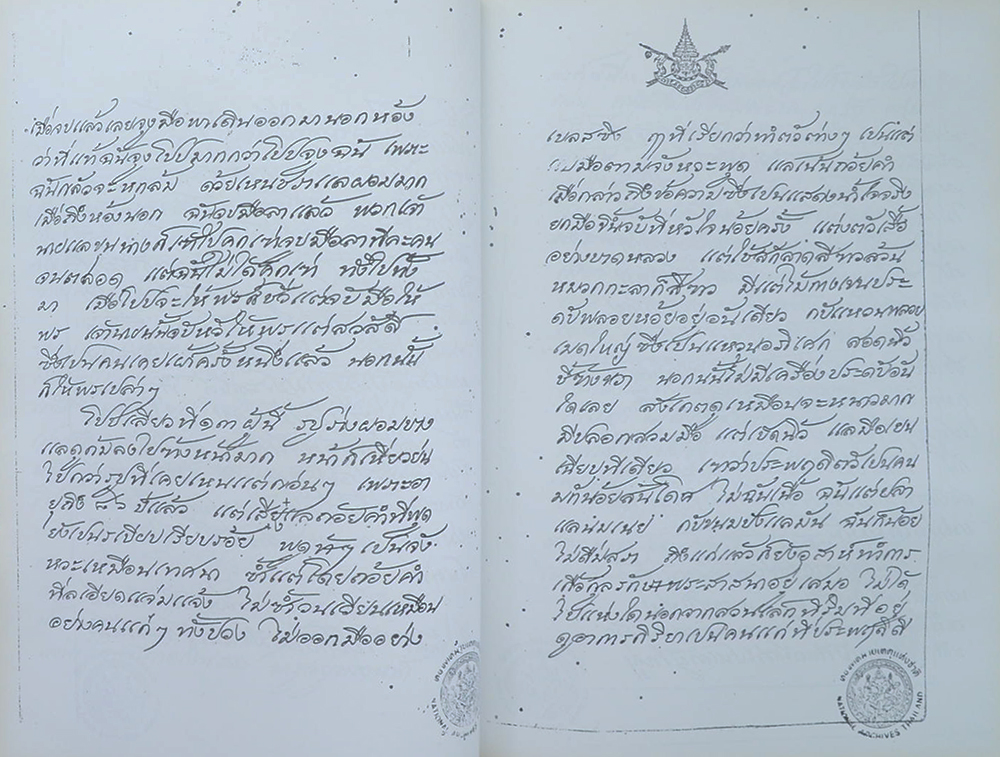 เมื่อจบแล้วเลยจูงมือพาเดินออกมานอกห้อง
ว่าที่แท้ฉันจูงโปปมากกว่าโปปจูงฉัน เพราะ
ฉันกลัวจะหกล้ม ด้วยเหนชราแลผอมมาก
เมื่อถึงห้องนอก ฉันจับมือลาแล้ว พวกเจ้า
นายแลขุนนางก็เข้าไปคุกเข่าจับมือลาทีละคน
จนตลอด แต่ฉันไม่ได้คุกเข่า ทั้งไปทั้ง
มา เมื่อโปปจะให้พรก็ชั่วแต่จับมือให้
พร เจ้านายนั้นจับหัวให้พรแต่สวัสดี
ซึ่งเปนคนเคยเฝ้าครั้งหนึ่งแล้ว นอกนั้น
ก็ให้พรเปล่าๆ
โปปลีโอที่๑๓ ผู้นี้ รูปร่างผอมบาง
แลดูก้มลงไปข้างหน้ามาก หน้าก็เหี่ยวย่น
ไปกว่ารูปที่เคยเหนแต่ก่อนๆ เพราะอา
ยุถึง ๘๖ ปีแล้ว แต่เสียงแลถ้อยคำที่พูด
ยังเปนระเบียบเรียบร้อย พูดช้าๆ เปนจัง
หวะเหมือนเทศนา ซ้ำแต่โดยถ้อยคำ
ที่ลเอียดแจ่มแจ้ง ไม่ซ้ำวนเวียนเหมือน
อย่างคนแก่ๆ ทั้งปวง ไม่ออกมืออย่าง
เบลสซิง ฤๅที่เรียกว่าทำตัวต่างๆ เปนแต่
มือตามจังหวะพูด แลเน้นถ้อยคำ
เมื่อกล่าวถึงข้อความซึ่งเปนแสดงน้ำใจจริง
ยกมือขึ้นจับที่หัวใจน้อยครั้ง แต่งตัวเสื้อ
อย่างบาดหลวง แต่ใช้สักลาดสีขาวล้วน
หมวกกะลาก็สีขาว มีแต่ไม้กางเขนประ
ดับพลอยห้อยอยู่อันเดียว กับแหวนพลอย
เมดใหญ่ ซึ่งเปนแหวนอภิเศก สอดนิ้ว
ชี้ข้างขวา นอกนั้นไม่มีเครื่องประดับอัน
ใดเลย สังเกตดูเหมือนจะหนาวมาก
มีปลอกสวมมือ แต่เปิดนิ้ว แลมือเยน
เฉียบทีเดียว เขาว่าประพฤติตัวเปนคน
มักน้อยสันโดศ ไม่ฉันเนื้อ ฉันแต่ปลา
แลนมเนย กับขนมปังแลมัน ฉันก็น้อย
ไม่ดื่มสุรา ถึงแก่แล้วก็ยังอุสาห์ทำการ
เกื้อกูลรักษาพระสาสนาอยู่เสมอ ไม่ได้
ไปแห่งใดนอกจากสวนเล็กที่ในที่อยู่
ดูอาการกิริยาเปนคนแก่ที่ประพฤติดี
หอจดหมายเหตุแห่งชาติ
NATIONAL ARCHIVES THAILAND